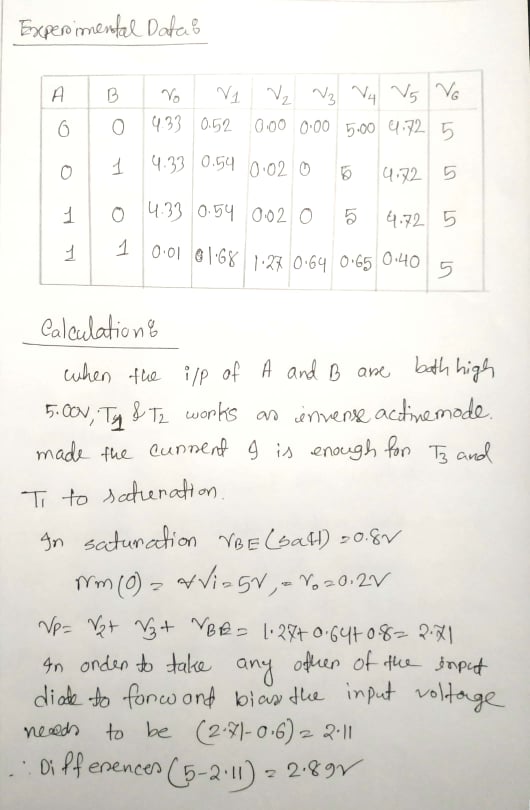 Experimental Data:
A B V₀ V₁ V₂ V₃ V₄ V₅ V₆
0 0 4.33 0.52 0.00 0.00 5.00 4.72 5
0 1 4.33 0.54 0.02 0 5 4.72 5
1 0 4.33 0.54 0.02 0 5 4.72 5
1 1 0.01 1.68 1.27 0.64 0.65 0.40 5
Calculation:
when the i/p of A and B are both high
5.00V, T1 & T2 works as inverse activemode.
made the current I is enough for T3 and
T1 to saturation.
In saturation VBE (sat) = 0.8V
(0) = Vi = 5V, = V₀ = 0.2V
Vp = V₂ + V₃ + VBE = 1.27 + 0.64 + 0.8 = 2.71
In order to take any other of the input
diode to forword bias the input voltage
needs to be (2.71-0.6) = 2.11
∴ Differences (5-2.11) = 2.89V